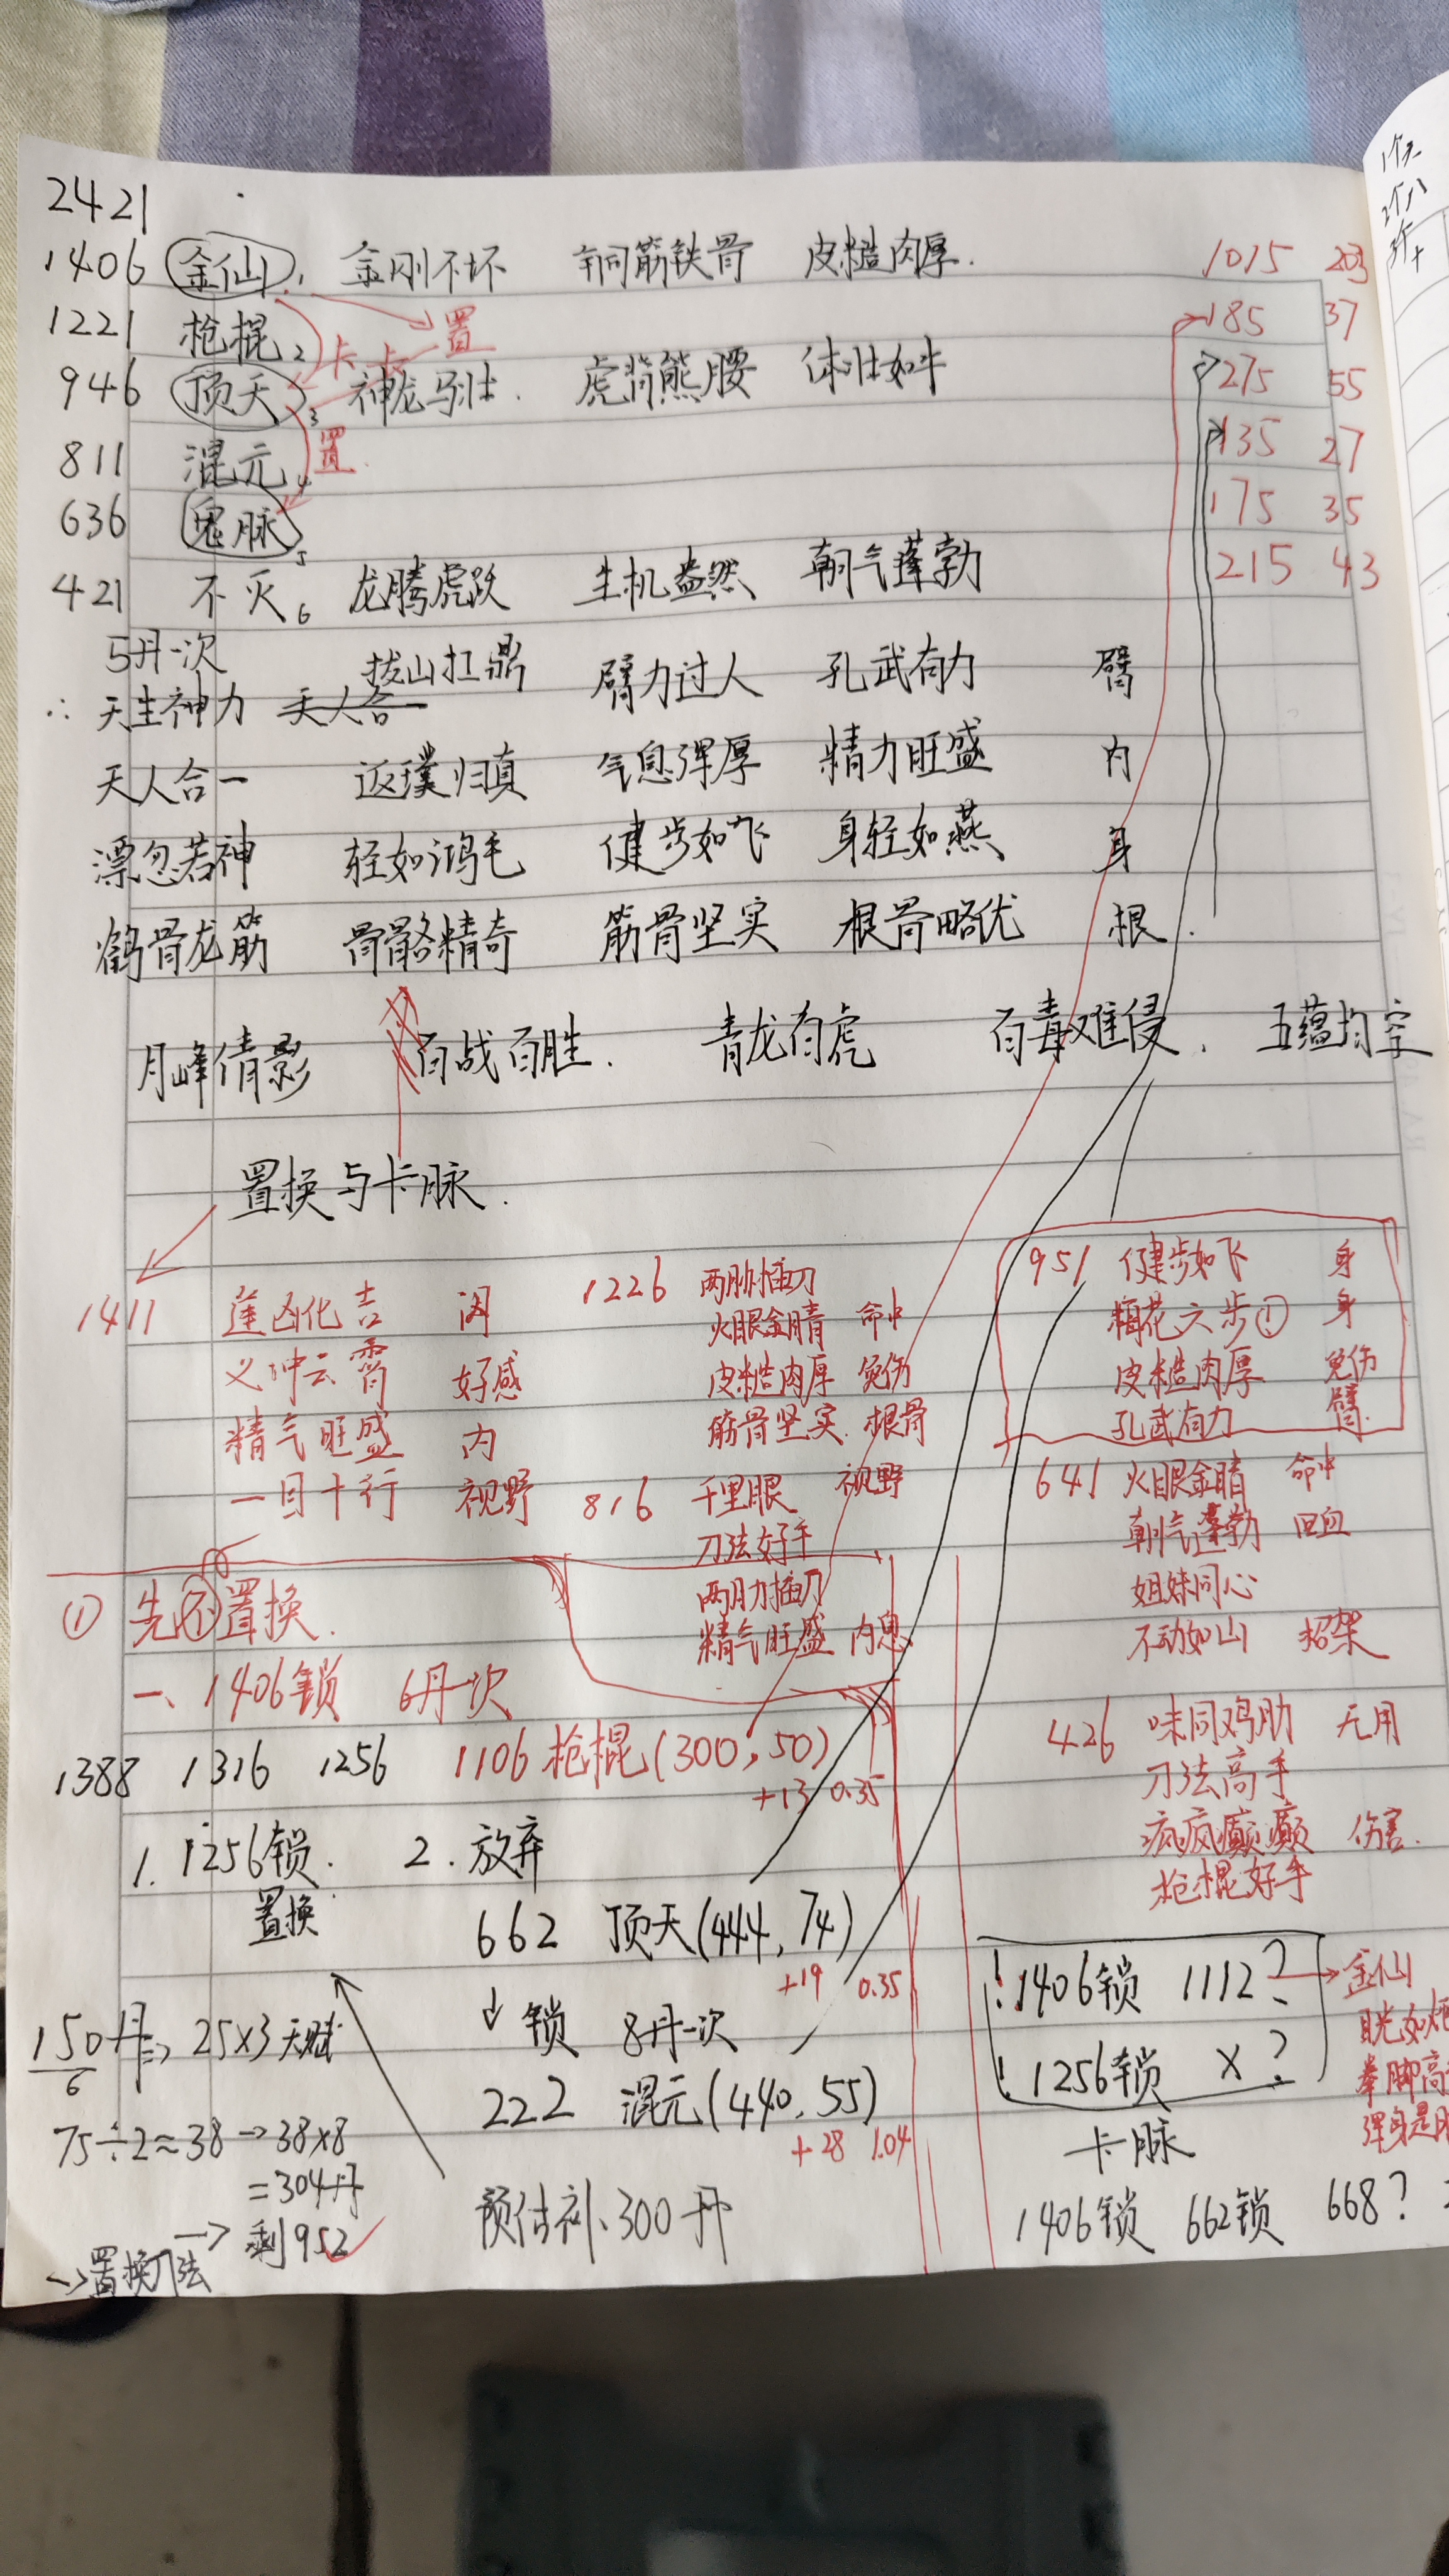 2421
1406 金仙1 金刚不坏 钢筋铁骨 皮糙肉厚. 1015 203
1221 枪棍2 卡 卡 置 185 37
946 顶天3 神龙马壮. 虎背熊腰 体壮如牛 275 55
811 混元4 置. 135 27
636 鬼脉5 175 35
421 不灭6 龙腾虎跃 生机盎然 朝气蓬勃 215 43
5丹一次
拔山扛鼎 臂力过人 孔武有力 臂
∴ 天生神力 天人合一
天人合一 返璞归真 气息浑厚 精力旺盛 内
漂忽若神 轻如鸿毛 健步如飞 身轻如燕 身
鹤骨龙筋 骨骼精奇 筋骨坚实 根骨略优 根.
月峰倩影 百战百胜. 青龙白虎 百毒难侵. 五蕴均空
置换与卡脉.
1411 逢凶化吉 闪
义冲云霄 好感
精气旺盛 内
一目十行 视野
1226 两肋插刀
火眼金睛 命中
皮糙肉厚 免伤
筋骨坚实 根骨
816 千里眼 视野
刀法好手
两肋插刀
精气旺盛 内息
951 健步如飞 身
梅花六步① 身
皮糙肉厚 免伤
孔武有力 臂.
641 火眼金睛 命中
朝气蓬勃 回血
姐妹同心
不动如山 招架
426 味同鸡肋 无用
刀法高手
疯疯癫癫 伤害.
枪棍好手
① 先不置换.
一、1406锁 6丹一次
1388 1316 1256 1106 枪棍(300,50)
+13 0.35
1. 1256锁. 2. 放弃
置换
662 顶天(444,74)
+19 0.35
↓ 锁 8丹一次
222 混元(440,55)
+28 1.04
预估补300丹
150丹/6 => 25×3天赋
75÷2≈38→38×8
=304丹
→剩952
→置换刀法
! 1406锁 1112? → 金仙
! 1256锁 ×?
拳脚高
浑身是
卡脉
1406锁 662锁 668?